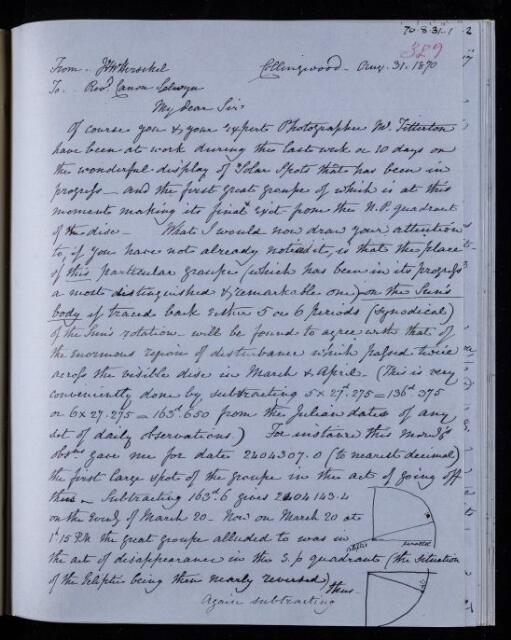 70-8-31-1
2
389
From J F W Herschel Collingwood - Aug. 31. 1870
To Revd. Canon Selwyn
My dear Sir
Of course you & your expert Photographer Mr. Titterton
have been at work during this last week or 10 days on
the wonderful display of Solar Spots that has been in
progress - and the first great groupe of which is at this
moment making its final exit from the N.P. quadrant
of the disc - What I would now draw your attention
to, if you have not already noticed it, is that the place
of this particular groupe (which has been in its progress
a most distinguished & remarkable one) on the Sun's
body if traced back either 5 or 6 periods (Synodical)
of the Sun's rotation will be found to agree with that of
the enormous region of disturbance which passed twice
across the visible disc in March & April - (This is very
conveniently done by subtracting 5 x 27d.275 = 136d.375
or 6 x 27.275 = 163d.650 from the Julian dates of any
set of daily observations) For instance this morng's
obsns gave me for date 2404307.0 (to nearest decimal)
the first large spot of the groupe in the act of going off
thus - Subtracting 163d.6 gives 2404143.4
on the Eveng of March 20 - Now on March 20 at
1h 15 P.M. the great groupe alluded to was in
ecliptic
the act of disappearance in the S.p quadrant (the situation
of the Ecliptic being then nearly reversed) thus -
Again subtracting